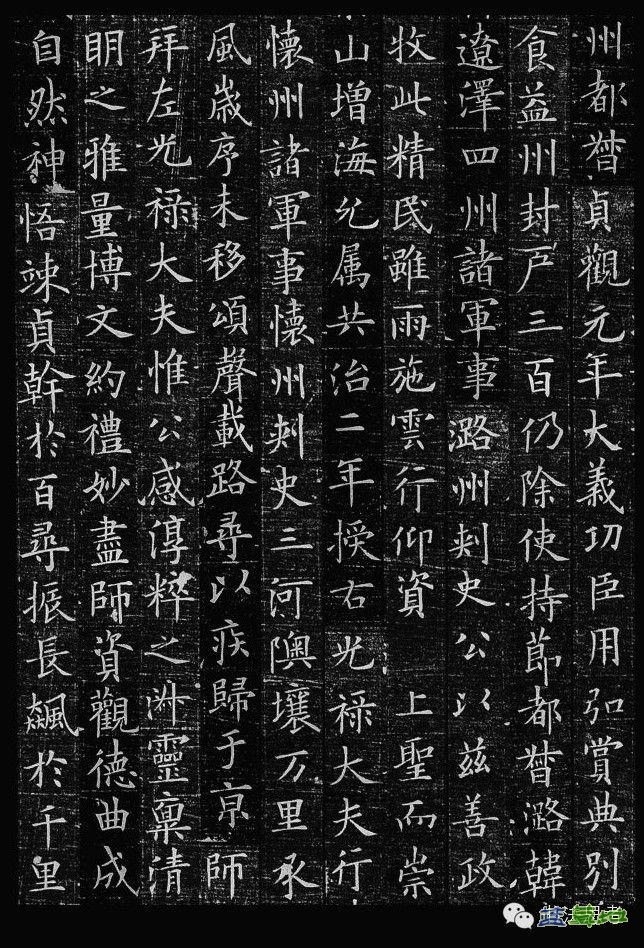 州都督貞觀元年大義功臣用弘賞典別
食益州封戸三百仍除使持節都督潞韓
遼澤四州諸軍事潞州刺史公以茲善政
牧此精民雖雨施雲行仰資上聖而崇
山增海允属共治二年授右光禄大夫行
懷州諸軍事懷州刺史三河隩壤万里承
風歲序未移頌聲載路尋以疾歸于京師
拜左光禄大夫惟公感淳粹之沖靈稟清
明之雅量博文約禮妙盡師資觀德曲成
自然神悟竦貞幹於百尋振長飆於千里